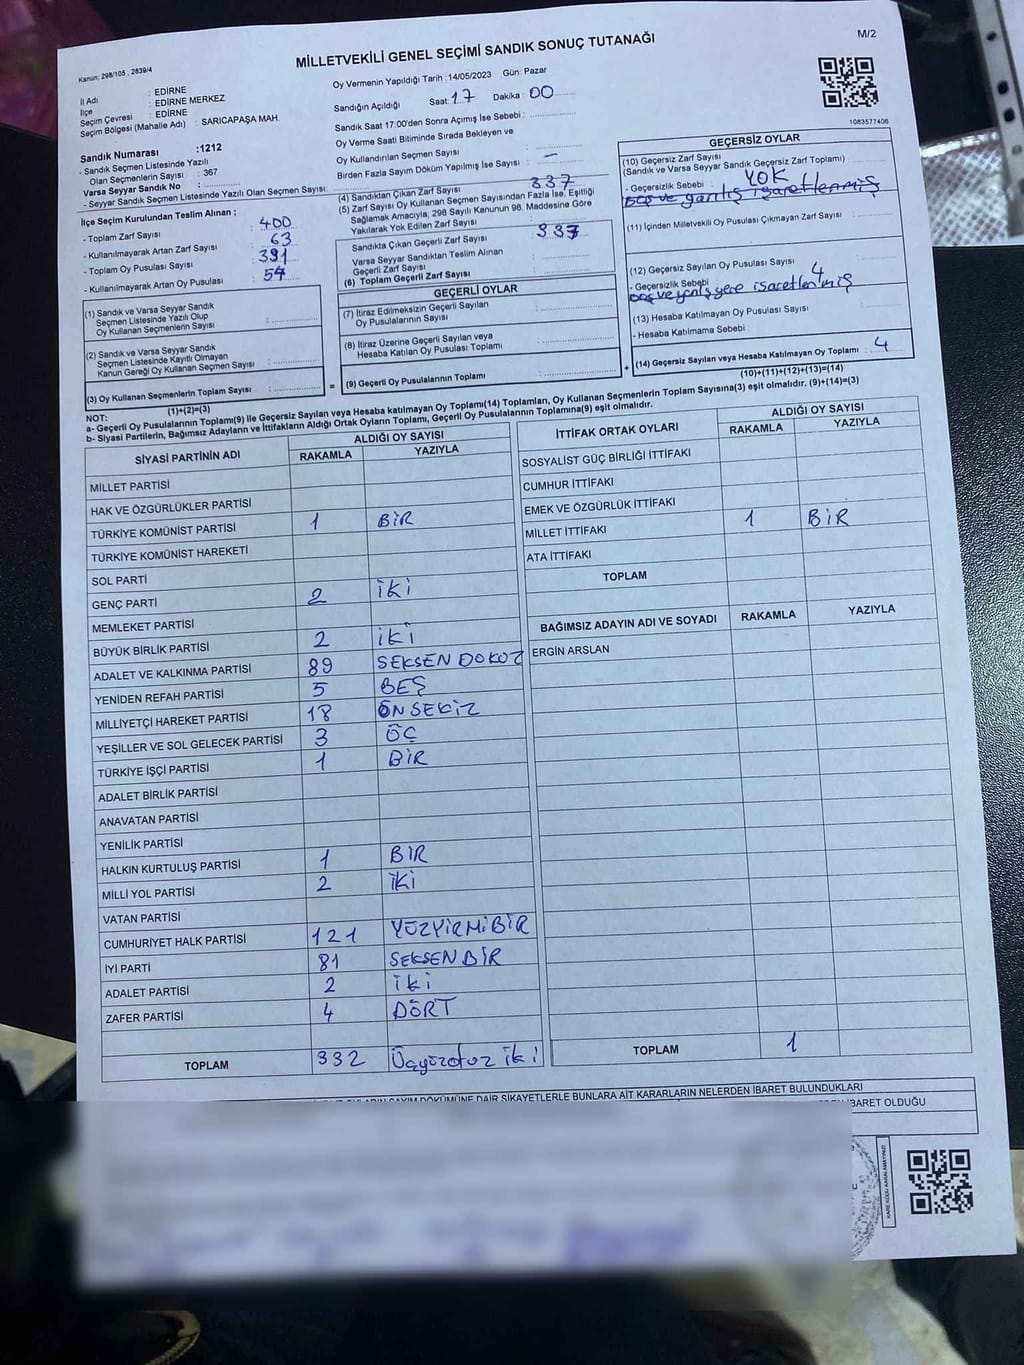 MİLLETVEKİLİ GENEL SEÇİMİ SANDIK SONUÇ TUTANAĞI
M/2
Kanun; 298/105 , 2839/4
İl Adı : EDİRNE
İlçe : EDİRNE MERKEZ
Seçim Çevresi : EDİRNE
Seçim Bölgesi (Mahalle Adı) : SARICAPAŞA MAH.
Sandık Numarası :1212
- Sandık Seçmen Listesinde Yazılı
Olan Seçmenlerin Sayısı : 367
Varsa Seyyar Sandık No :
- Seyyar Sandık Seçmen Listesinde Yazılı Olan Seçmen Sayısı:
İlçe Seçim Kurulundan Teslim Alınan ;
- Toplam Zarf Sayısı : 400
- Kullanılmayarak Artan Zarf Sayısı : 63
- Toplam Oy Pusulası Sayısı : 391
- Kullanılmayarak Artan Oy Pusulası : 54
(1) Sandık ve Varsa Seyyar Sandık
Seçmen Listesinde Yazılı Olup
Oy Kullanan Seçmenlerin Sayısı :
(2) Sandık ve Varsa Seyyar Sandık
Seçmen Listesinde Kayıtlı Olmayan
Kanun Gereği Oy Kullanan Seçmen Sayısı :
(3) Oy Kullanan Seçmenlerin Toplam Sayısı :
(1)+(2)=(3)
Oy Vermenin Yapıldığı Tarih : 14/05/2023 Gün: Pazar
Sandığın Açıldığı Saat: 17 Dakika : 00
Sandık Saat 17:00'den Sonra Açımış İse Sebebi :
Oy Verme Saati Bitiminde Sırada Bekleyen ve
Oy Kullandırılan Seçmen Sayısı :
Birden Fazla Sayım Döküm Yapılmış İse Sayısı : —
(4) Sandıktan Çıkan Zarf Sayısı : 337
(5) Zarf Sayısı Oy Kullanan Seçmen Sayısından Fazla İse, Eşitliği
Sağlamak Amacıyla; 298 Sayılı Kanunun 98. Maddesine Göre
Yakılarak Yok Edilen Zarf Sayısı :
Sandıkta Çıkan Geçerli Zarf Sayısı : 337
Varsa Seyyar Sandıktan Teslim Alınan
Geçerli Zarf Sayısı :
(6) Toplam Geçerli Zarf Sayısı :
GEÇERLİ OYLAR
(7) İtiraz Edilmeksizin Geçerli Sayılan
Oy Pusulalarının Sayısı :
(8) İtiraz Üzerine Geçerli Sayılan veya
Hesaba Katılan Oy Pusulası Toplamı :
= (9) Geçerli Oy Pusulalarının Toplamı :
1083577406
GEÇERSİZ OYLAR
(10) Geçersiz Zarf Sayısı
(Sandık ve Varsa Seyyar Sandık Geçersiz Zarf Toplamı) :
- Geçersizlik Sebebi : YOK
(11) İçinden Milletvekili Oy Pusulası Çıkmayan Zarf Sayısı :
(12) Geçersiz Sayılan Oy Pusulası Sayısı : 4
- Geçersizlik Sebebi
(13) Hesaba Katılmayan Oy Pusulası Sayısı :
- Hesaba Katılmama Sebebi :
+ (14) Geçersiz Sayılan veya Hesaba Katılmayan Oy Toplamı : 4
(10)+(11)+(12)+(13)=(14)
NOT:
a- Geçerli Oy Pusulalarının Toplamı(9) ile Geçersiz Sayılan veya Hesaba katılmayan Oy Toplamı(14) Toplamları, Oy Kullanan Seçmenlerin Toplam Sayısına(3) eşit olmalıdır. (9)+(14)=(3)
b- Siyasi Partilerin, Bağımsız Adayların ve İttifakların Aldığı Ortak Oyların Toplamı, Geçerli Oy Pusulalarının Toplamına(9) eşit olmalıdır.
SİYASİ PARTİNİN ADI ALDIĞI OY SAYISI
RAKAMLA YAZIYLA
MİLLET PARTİSİ
HAK VE ÖZGÜRLÜKLER PARTİSİ
TÜRKİYE KOMÜNİST PARTİSİ 1 BİR
TÜRKİYE KOMÜNİST HAREKETİ
SOL PARTİ
GENÇ PARTİ 2 İKİ
MEMLEKET PARTİSİ
BÜYÜK BİRLİK PARTİSİ 2 İKİ
ADALET VE KALKINMA PARTİSİ 89 SEKSEN DOKUZ
YENİDEN REFAH PARTİSİ 5 BEŞ
MİLLİYETÇİ HAREKET PARTİSİ 18 ONSEKİZ
YEŞİLLER VE SOL GELECEK PARTİSİ 3 ÜÇ
TÜRKİYE İŞÇİ PARTİSİ 1 BİR
ADALET BİRLİK PARTİSİ
ANAVATAN PARTİSİ
YENİLİK PARTİSİ
HALKIN KURTULUŞ PARTİSİ 1 BİR
MİLLİ YOL PARTİSİ 2 İKİ
VATAN PARTİSİ
CUMHURİYET HALK PARTİSİ 121 YÜZYİRMİBİR
İYİ PARTİ 81 SEKSEN BİR
ADALET PARTİSİ 2 İKİ
ZAFER PARTİSİ 4 DÖRT
TOPLAM 332 Üçyüzotuz iki
İTTİFAK ORTAK OYLARI ALDIĞI OY SAYISI
RAKAMLA YAZIYLA
SOSYALİST GÜÇ BİRLİĞİ İTTİFAKI
CUMHUR İTTİFAKI
EMEK VE ÖZGÜRLÜK İTTİFAKI
MİLLET İTTİFAKI 1 BİR
ATA İTTİFAKI
TOPLAM
BAĞIMSIZ ADAYIN ADI VE SOYADI RAKAMLA YAZIYLA
ERGİN ARSLAN
TOPLAM 1
DÖKÜMÜNE DAİR ŞİKAYETLERLE BUNLARA AİT KARARLARIN NELERDEN İBARET BULUNDUKLARI
İBARET OLDUĞU